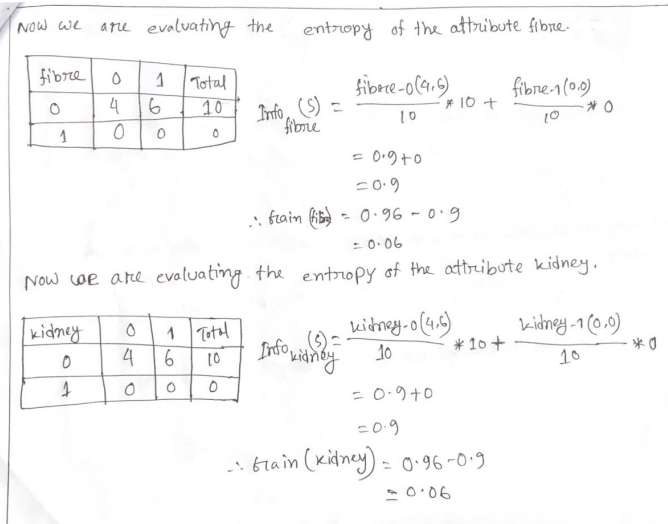 Now we are evaluating the entropy of the attribute fibre.
fibre 0 1 Total
0 4 6 10
1 0 0 0
Info fibre (S) = fibre-0(4,6) / 10 * 10 + fibre-1(0,0) / 10 * 0
= 0.9+0
= 0.9
∴ Gain (fibre) = 0.96 - 0.9
= 0.06
Now we are evaluating the entropy of the attribute kidney.
kidney 0 1 Total
0 4 6 10
1 0 0 0
Info kidney (S) = kidney-0(4,6) / 10 * 10 + kidney-1(0,0) / 10 * 0
= 0.9+0
= 0.9
∴ Gain (kidney) = 0.96-0.9
= 0.06